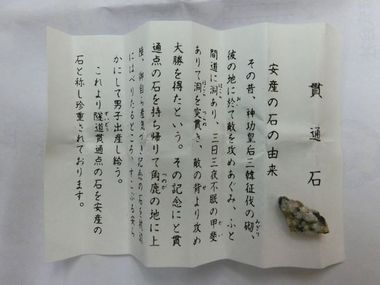 貫通石
安産の石の由来
その昔、神功皇后三韓征伐の砌、
彼の地に於て敵を攻めあぐみ、ふと
間道に洞あり、三日三夜不眠の甲斐
ありて洞を突貫き、敵の背より攻め
大勝を得たという。その記念にと貫
通点の石を持ち帰りて角鹿の地に上
陸、御自ら産気づき記念の石を
にはべりたるところ、すこぶる安ら
かにして男子出産し給う。
これより隧道貫通点の石を安産の
石と称し珍重されております。